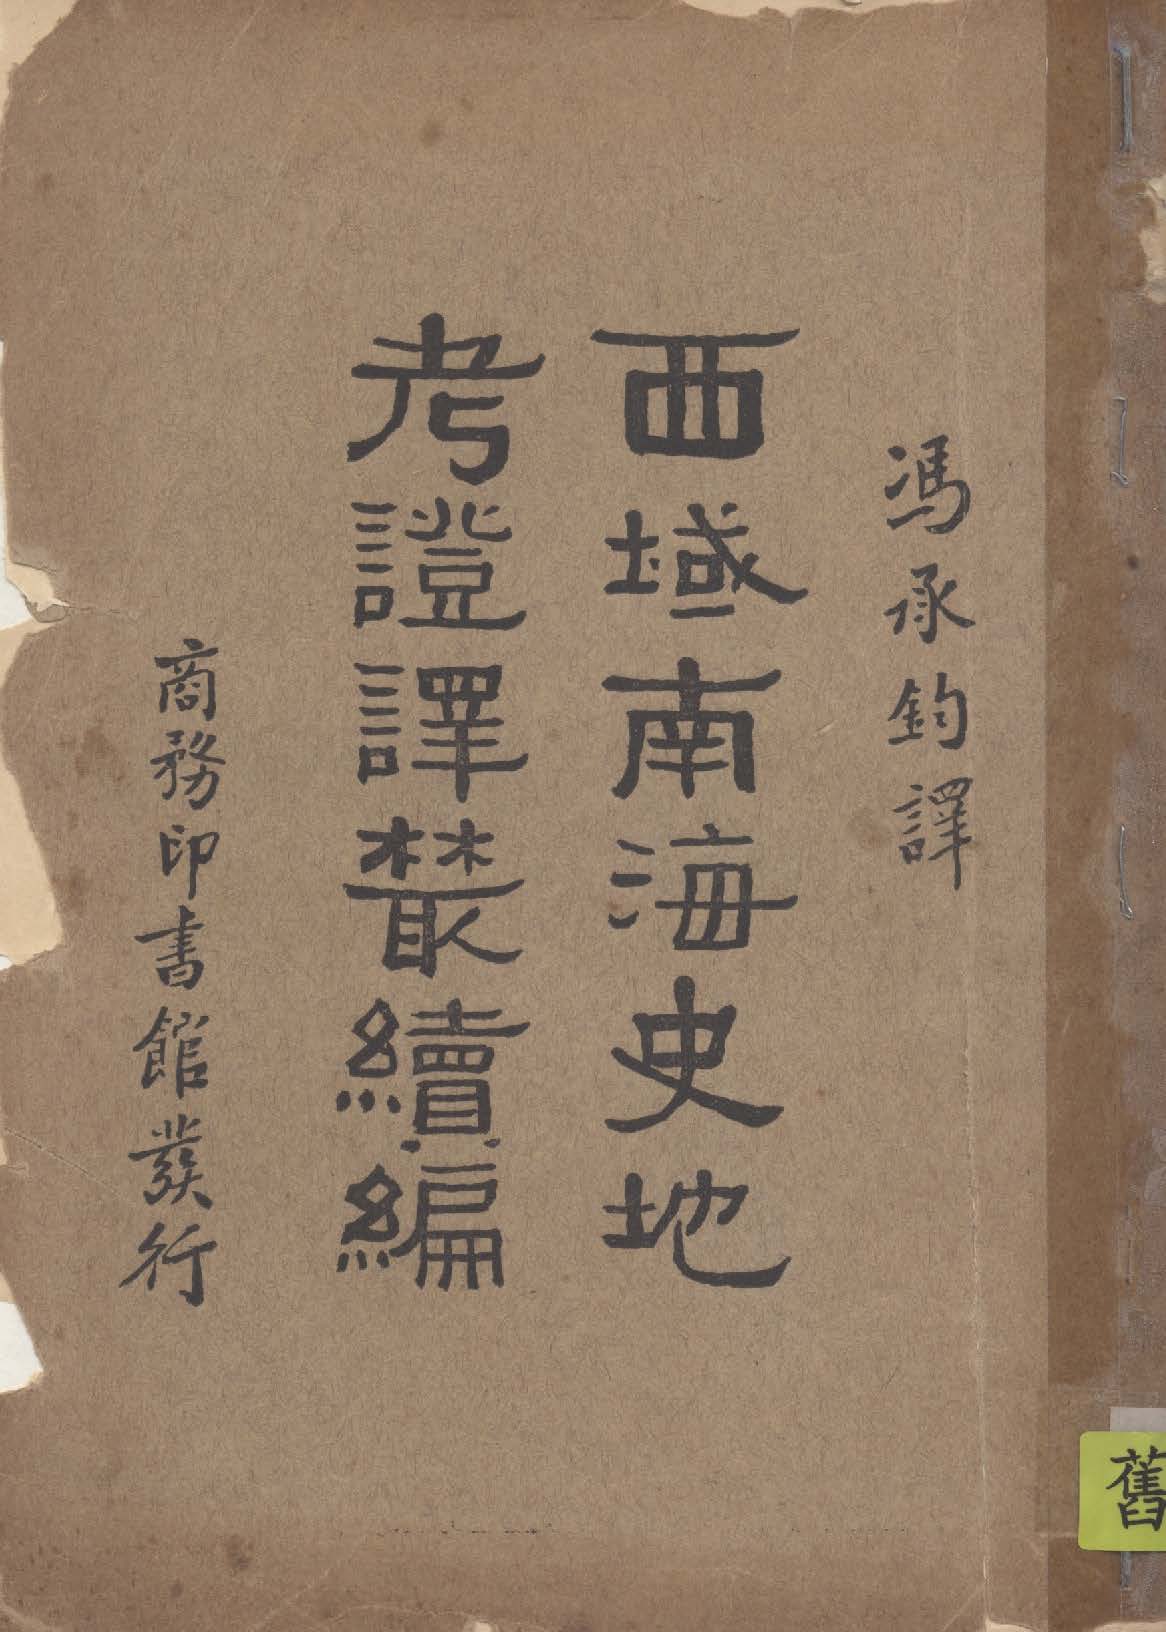 馮承鈞譯
西域南海史地
考證譯叢續編
商務印書館發行
舊